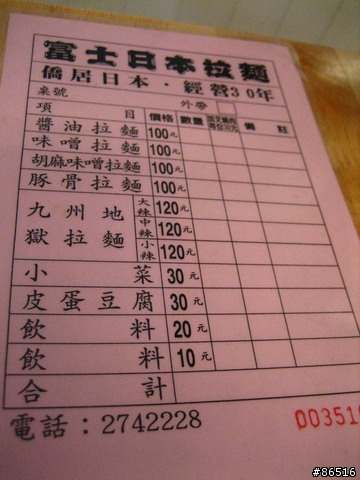 富士日本拉麵
僑居日本‧經營30年
桌號 外帶
項目 價格 數量 備註
醬油拉麵 100元
味噌拉麵 100元
胡麻味噌拉麵 100元
豚骨拉麵 100元
九州地獄拉麵 大辣 120元
中辣 120元
小辣 120元
小菜 30元
皮蛋豆腐 30元
飲料 20元
飲料 10元
合計
電話：2742228
#86516